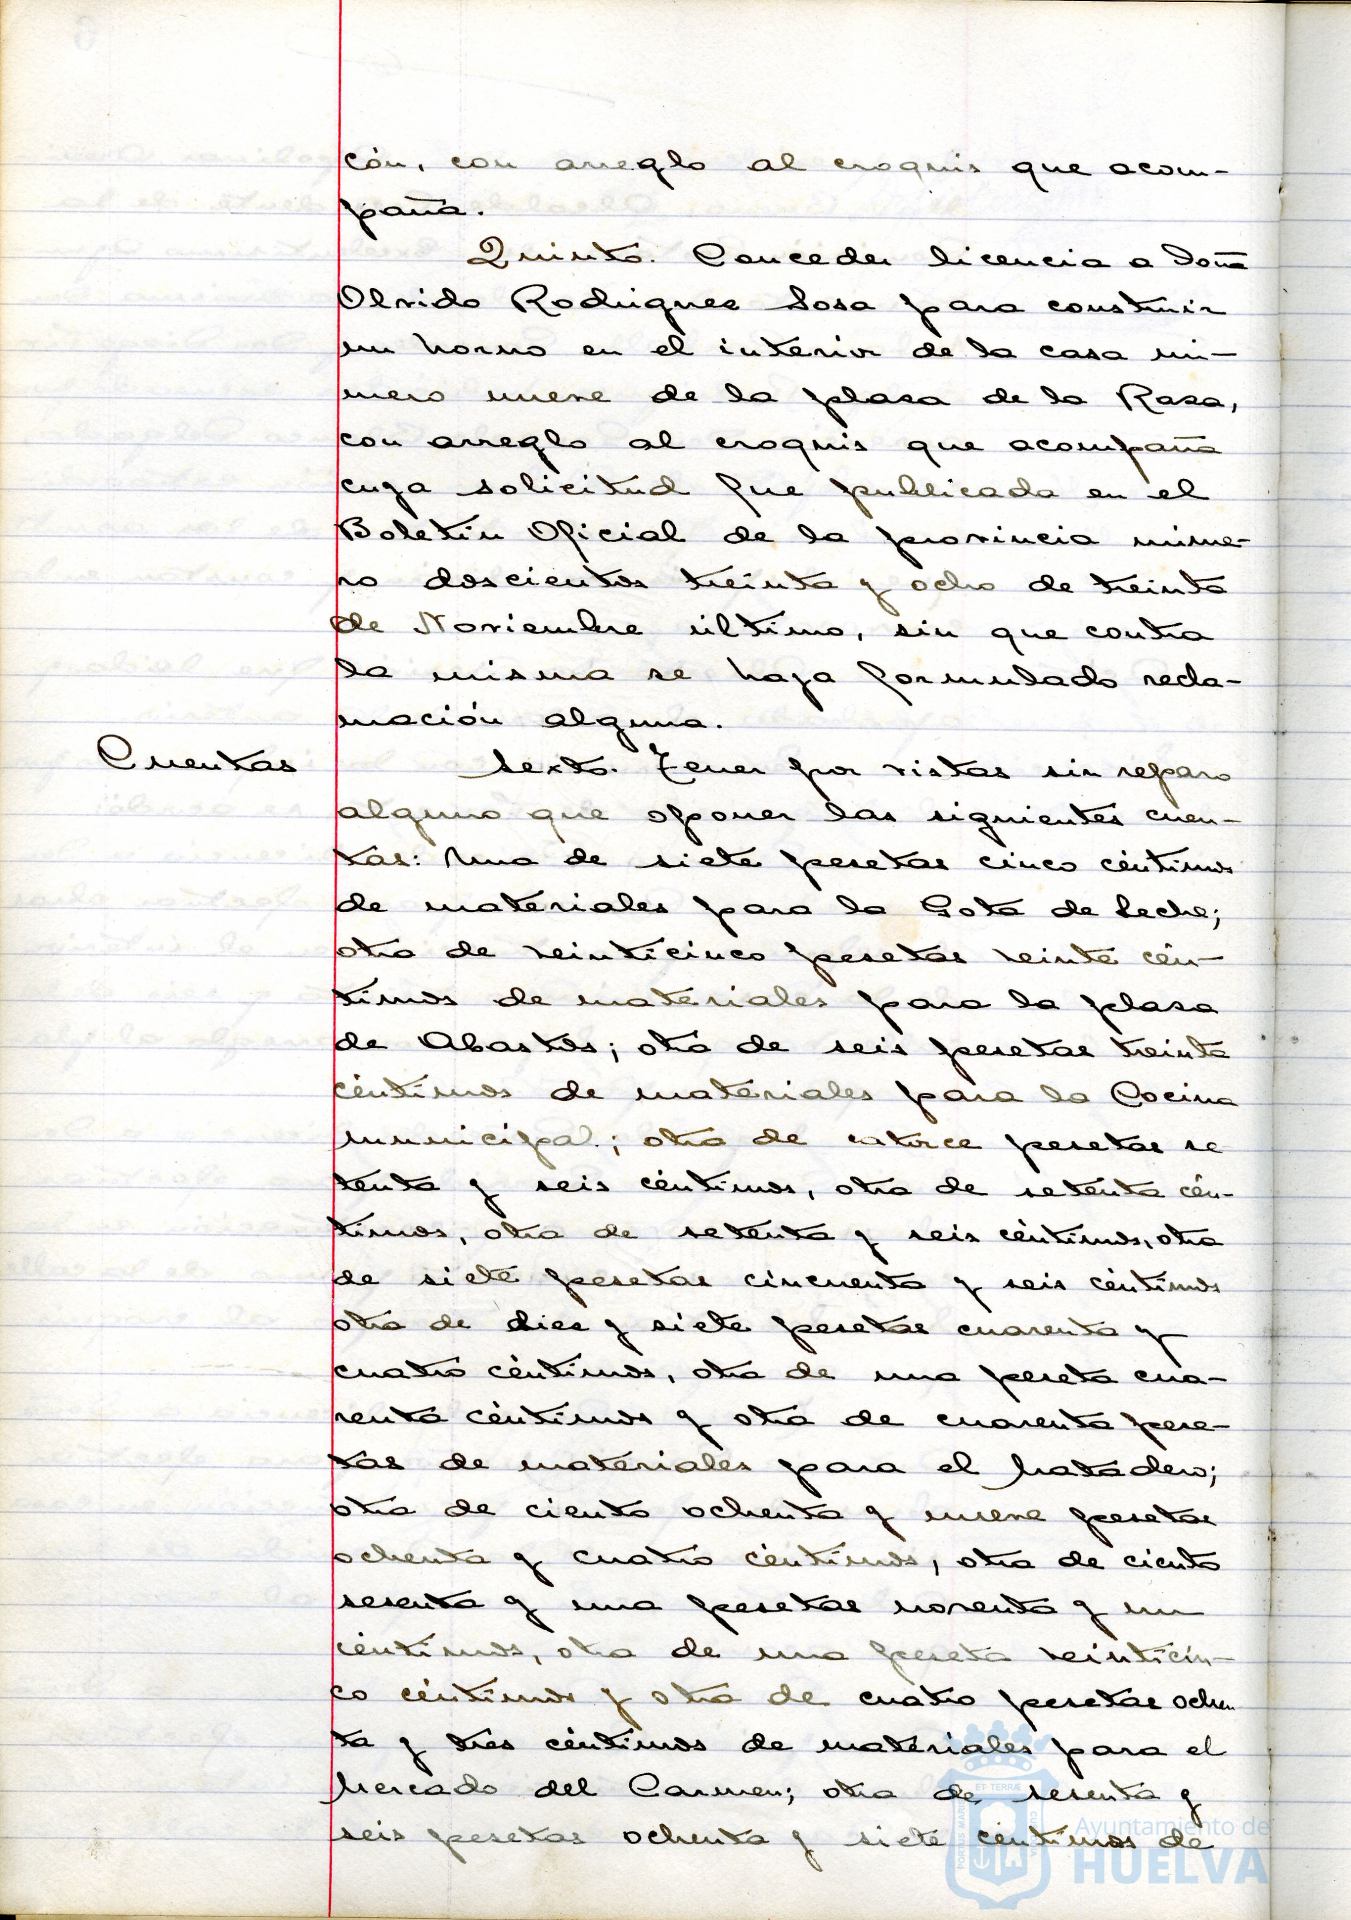 ción, con arreglo al croquis que acom-
paña.
Quinto. Conceder licencia a Doña
Olvido Rodriguez Sosa para construir
un horno en el interior de la casa nú-
mero nueve de la plaza de la Raza,
con arreglo al croquis que acompaña
cuya solicitud fue publicada en el
Boletín Oficial de la provincia núme-
ro doscientos treinta y ocho de treinta
de Noviembre último, sin que contra
la misma se haya formulado recla-
mación alguna.
Cuentas
Sexto. Tener por vistas sin reparo
alguno que oponer las siguientes cuen-
tas: Una de siete pesetas cinco céntimos
de materiales para la Gota de Leche;
otra de veinticinco pesetas veinte cén-
timos de materiales para la plaza
de Abastos; otra de seis pesetas treinta
céntimos de materiales para la Cocina
municipal; otra de catorce pesetas se
tenta y seis céntimos, otra de setenta cén-
timos, otra de setenta y seis céntimos, otra
de siete pesetas cincuenta y seis céntimos
otra de diez y siete pesetas cuarenta y
cuatro céntimos, otra de una peseta cua-
renta céntimos y otra de cuarenta pese-
tas de materiales para el Matadero;
otra de ciento ochenta y nueve pesetas
ochenta y cuatro céntimos, otra de ciento
sesenta y una pesetas noventa y un
céntimos, otra de una peseta veinticin-
co céntimos y otra de cuatro pesetas ochen
ta y tres céntimos de materiales para el
Mercado del Carmen; otra de sesenta y
seis pesetas ochenta y siete céntimos de
Ayuntamiento de
HUELVA